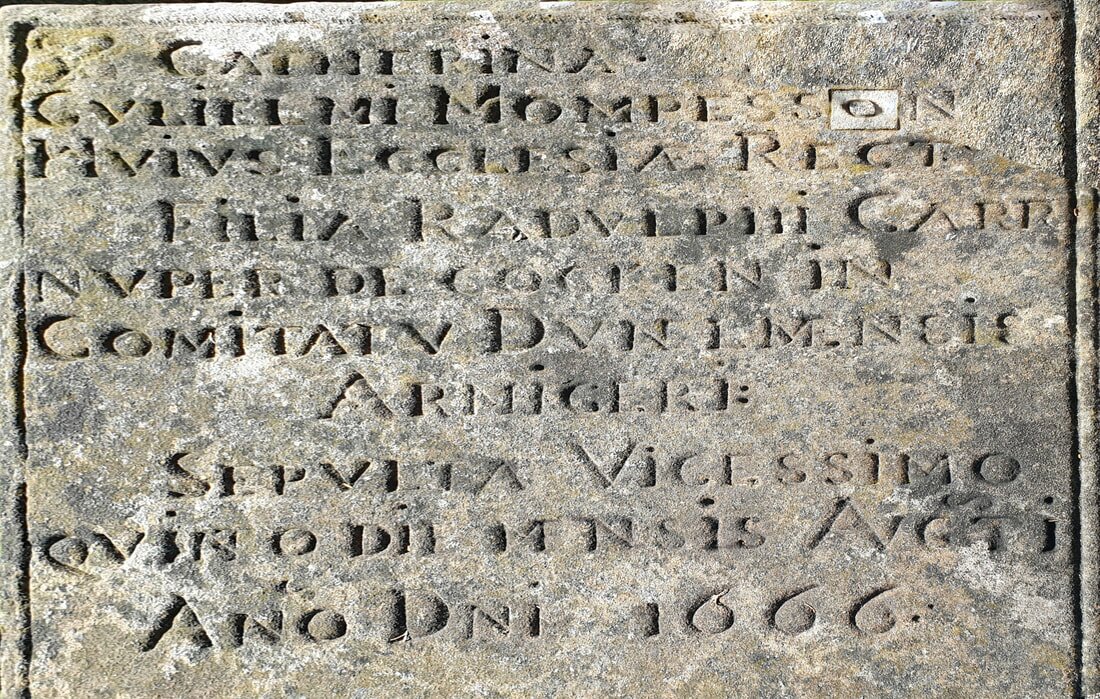 CATHERINA
GVLIELMI MOMPESSON
HVIVS ECCLESIA RECT
FILIA RADVLPHI CARR
NVPER DE COCKEN IN
COMITATV DVNELMENSIS
ARMIGERI:
SEPVLTA VICESSIMO
QVINTO DIE MENSIS AVGTI
ANO DNI 1666·